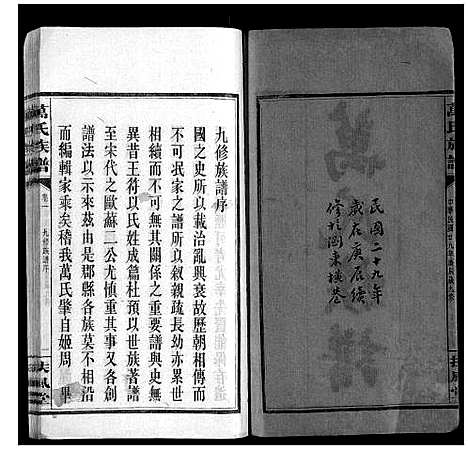 萬氏族譜
中華民國廿九年庚辰歲九修
扶風堂
民國二十九年
歲在庚辰續
修於澗東横巷
九修族譜序
國之史所以載治亂興衰故歷朝相傳而
不可氓家之譜所以敘親疏長幼亦累世
相續而無異其關係之重要譜與史無
異昔王符以氏姓成篇杜預以世族著譜
至宋代之歐蘇二公尤慎重其事又各創
譜法以示來茲由是郡縣各族莫不相沿
而編輯家乘矣稽我萬氏肇自姬周畢
萬氏族譜
卷一
九修族譜序
扶風堂